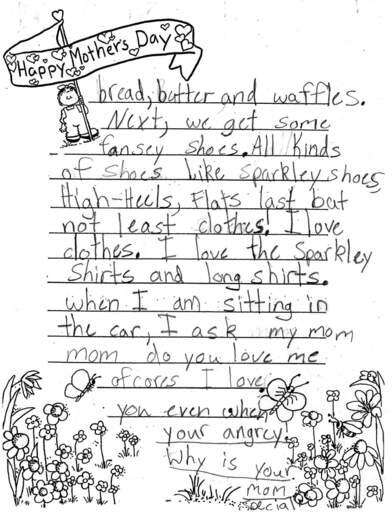 Happy Mother's Day
bread, butter and waffles.
Next, we get some
fansey shoes. All Kinds
of shoes like sparkley shoes,
High-Heels, Flats last but
not least clothes! I love
clothes. I love the Sparkley
Shirts and long shirts.
when I am sitting in
the car, I ask my mom
mom do you love me
of cores I love
you even when
your angrey!
Why is your
mom
special